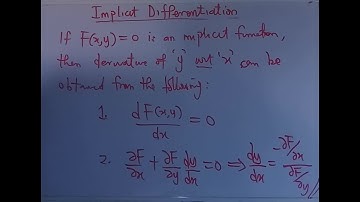 Implicit Differentiation
If F(x,y)=0 is an implicit function,
then derivative of 'y' wrt 'x' can be
obtained from the following:
1. dF(x,y)/dx = 0
2. ∂F/∂x + ∂F/∂y dy/dx = 0 ⟹ dy/dx = -∂F/∂x / ∂F/∂y //